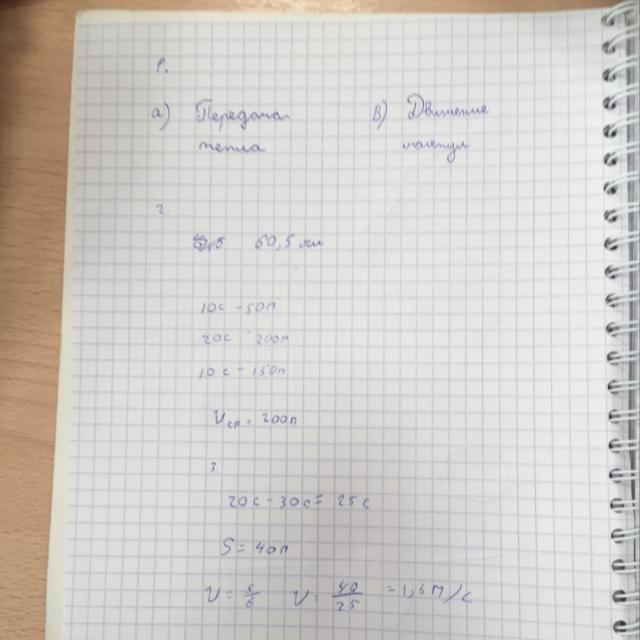 1.
а) Передача в) Движение
тепла молекул
2.
60,5 км
10с - 50м
20с - 200м
10с - 150м
Vср = 200м
3.
20с - 30с = 25с
S = 40м
V = S/t V = 40/25 = 1,6 м/с